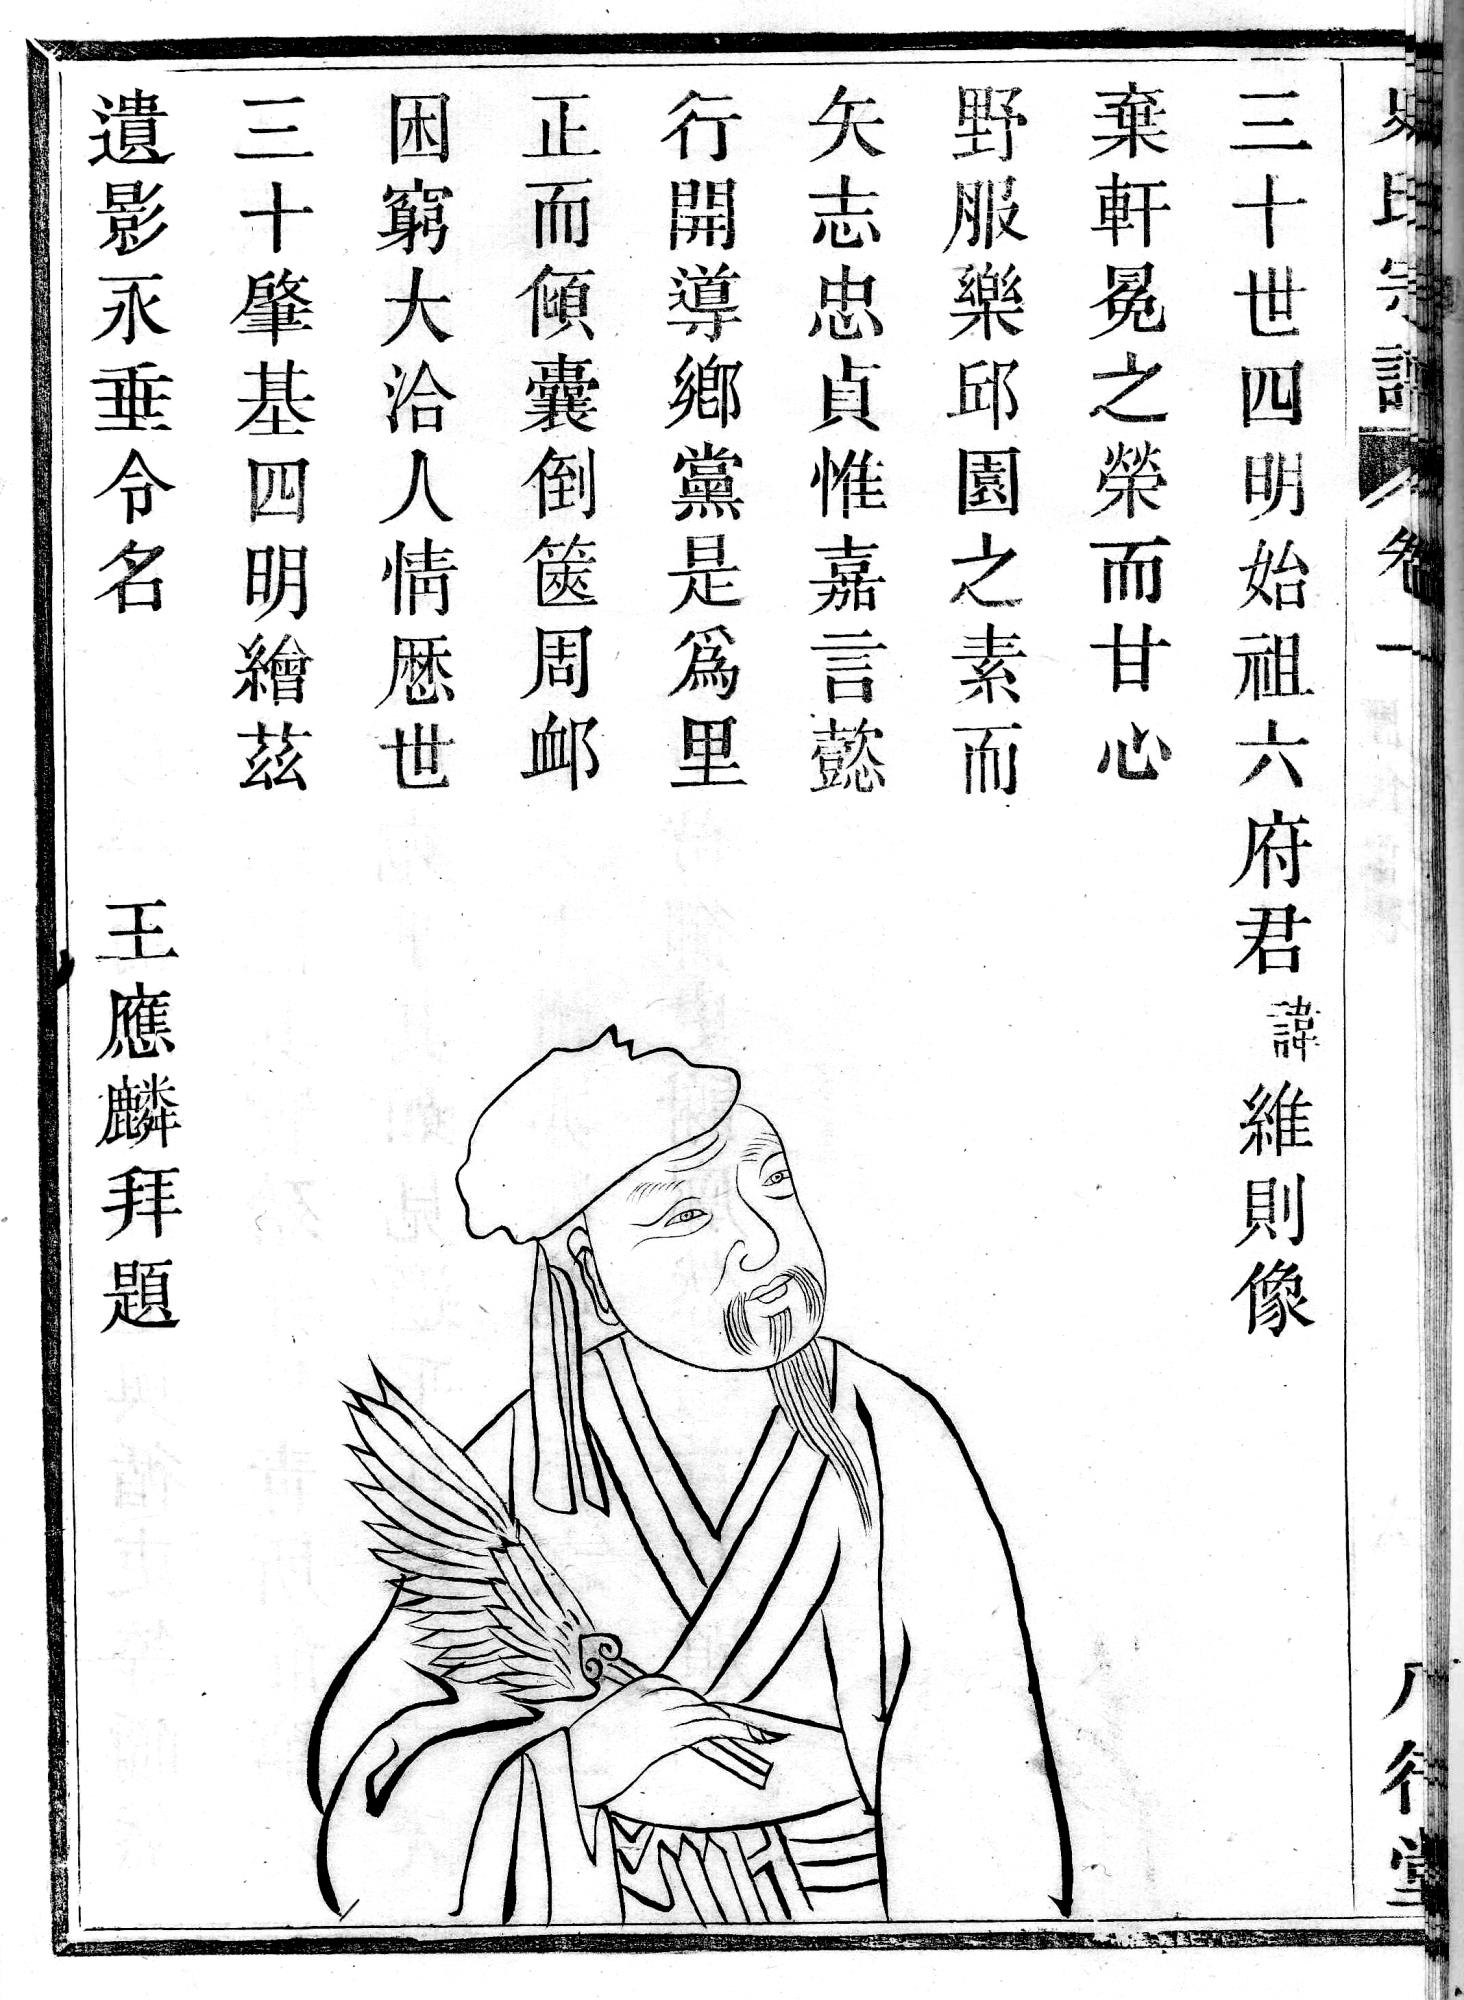 三十世四明始祖六府君諱維則像
棄軒冕之榮而甘心
野服樂邱園之素而
矢志忠貞惟嘉言懿
行開導鄉黨是為里
正而傾囊倒篋周卹
困窮大洽人情歷世
三十肇基四明繪茲
遺影永垂令名
王應麟拜題
史氏宗譜
卷一
八行堂